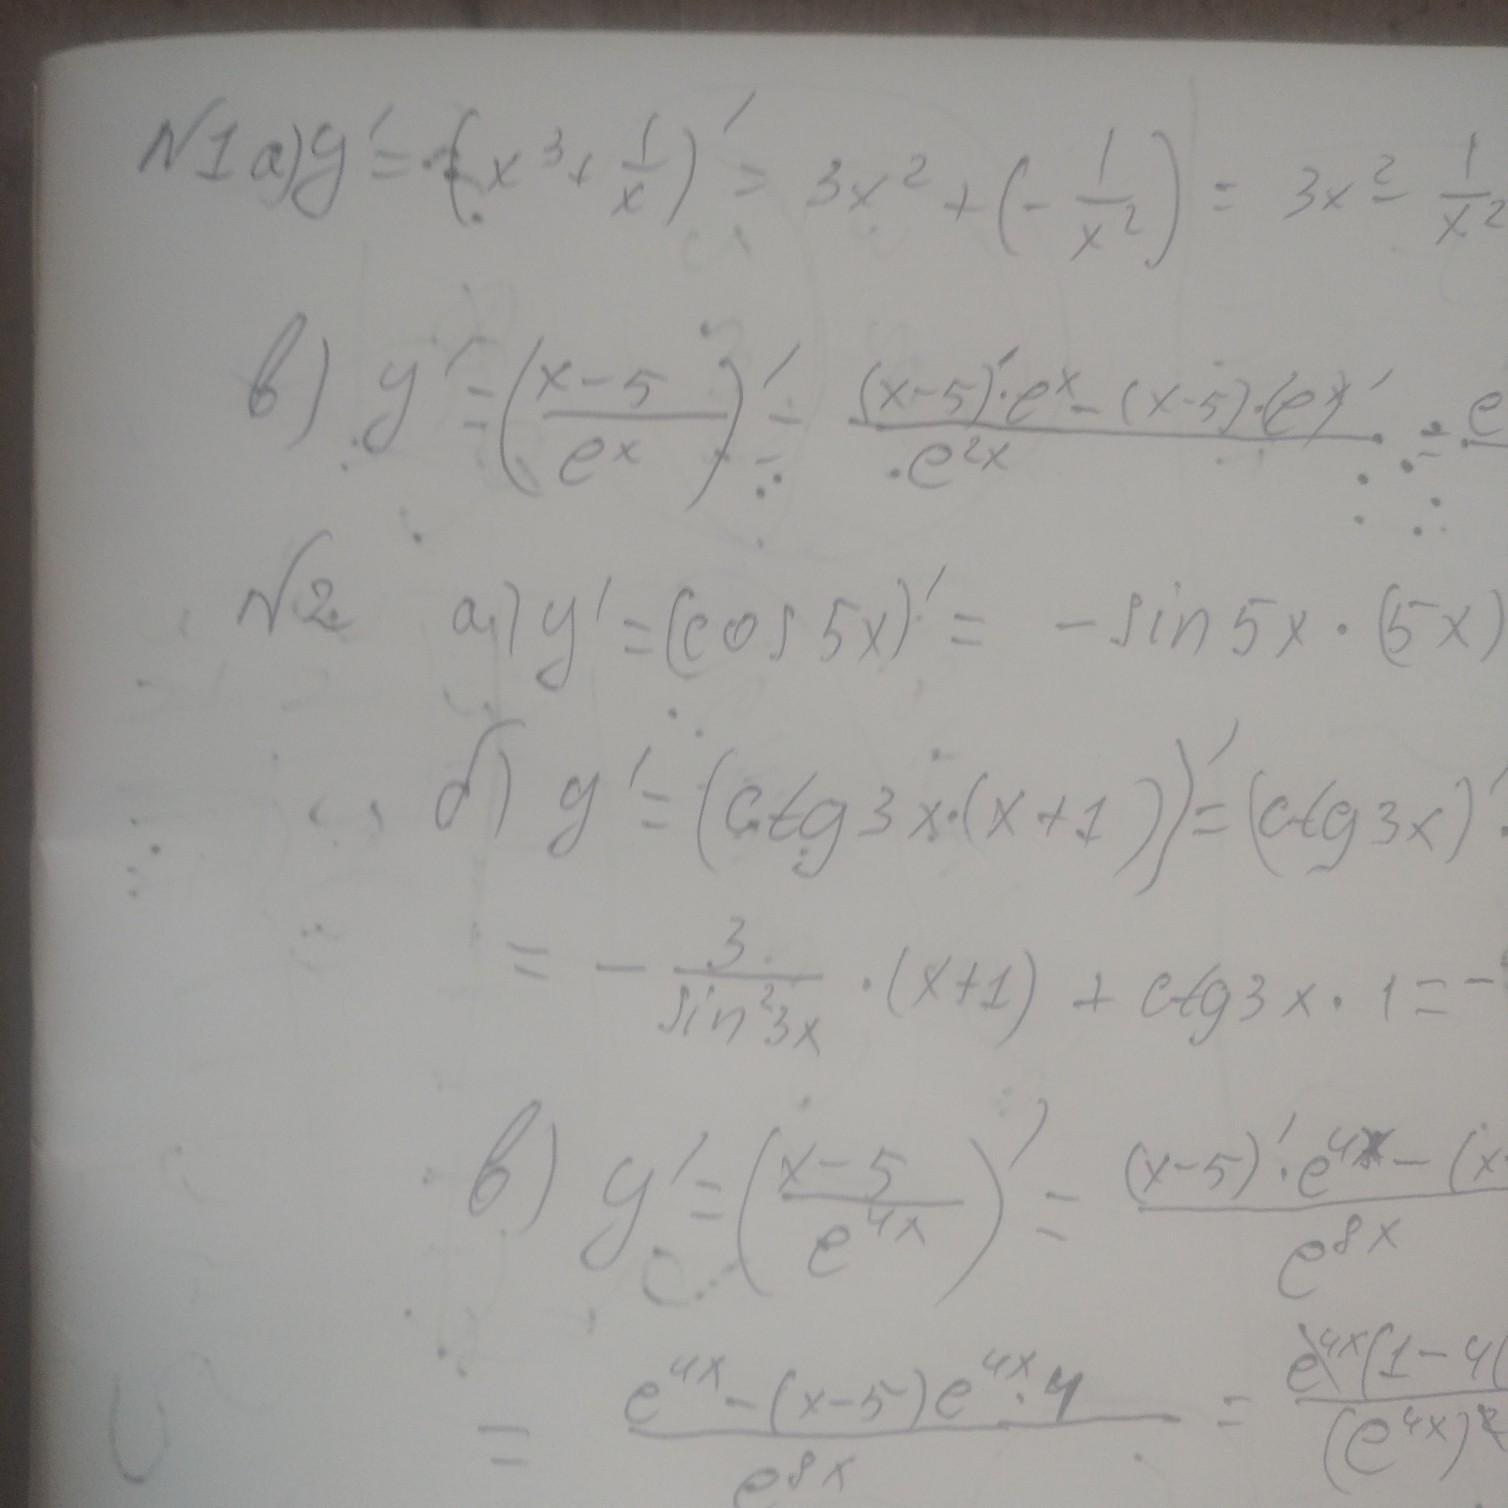 N1 a) y' = (x³ + 1/x)' = 3x² + (- 1/x²) = 3x² - 1/x²
в) y' = ((x-5)/eˣ)' = ((x-5)'·eˣ - (x-5)·(eˣ)')/e²ˣ = e
N2 a) y' = (cos 5x)' = -sin 5x · (5x)
б) y' = (ctg 3x·(x+1))' = (ctg 3x)'
= - 3/sin²3x · (x+1) + ctg 3x · 1 = -
в) y' = ((x-5)/e⁴ˣ)' = ((x-5)'·e⁴ˣ - (x/e⁸ˣ
= (e⁴ˣ - (x-5)e⁴ˣ·4)/e⁸ˣ = e⁴ˣ(1-4(/(e⁴ˣ)²